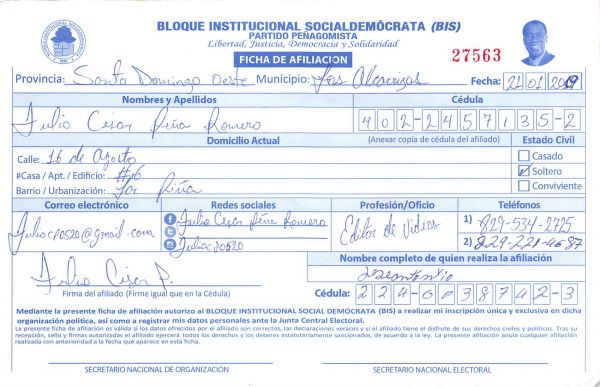 BLOQUE INSTITUCIONAL SOCIALDEMÓCRATA (BIS)
PARTIDO PEÑAGOMISTA
Libertad, Justicia, Democracia y Solidaridad
FICHA DE AFILIACIÓN
27563
Provincia: Santo Domingo Oeste Municipio: Los Alcarrizos Fecha: 21/01/2019
Nombres y Apellidos
Cédula
Julio César Peña Romero
402-2457135-2
Domicilio Actual
(Anexar copia de cédula del afiliado)
Estado Civil
Calle: 16 de Agosto
Casado
#Casa / Apt. / Edificio: #6
Soltero
Barrio / Urbanización: Peña
Conviviente
Correo electrónico
Redes sociales
Profesión/Oficio
Teléfonos
Juliocp0520@gmail.com
Julio César Peña Romero
Juliocp0520
Editor de Videos
1) 829-534-2725
2) 829-221-4687
Nombre completo de quien realiza la afiliación
Julio César P.
Firma del afiliado (Firme igual que en la Cédula)
Cédula: 224-0038742-3
Mediante la presente ficha de afiliación autorizo al BLOQUE INSTITUCIONAL SOCIAL DEMÓCRATA (BIS) a realizar mi inscripción única y exclusiva en dicha
organización política, así como a registrar mis datos personales ante la Junta Central Electoral.
La presente ficha de afiliación es válida si los datos ofrecidos por el afiliado son correctos, las declaraciones veraces y si el afiliado tiene el disfrute de sus derechos civiles y políticos. Tras su
recepción, sello y firmas autorizadas el afiliado ejercerá todos los derechos y los deberes estatutariamente sancionados, de acuerdo a la ley. La presente afiliación anula cualquier afiliación
realizada con anterioridad a la fecha que aparece en esta ficha.
SECRETARIO NACIONAL DE ORGANIZACIÓN
SECRETARIO NACIONAL ELECTORAL